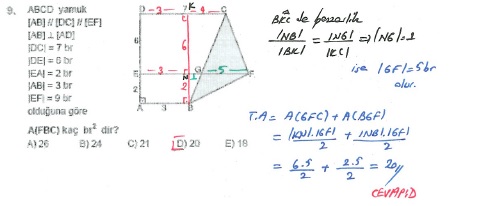 9. ABCD yamuk
[AB] // [DC] // [EF]
[AB] ⊥ [AD]
|DC| = 7 br
|DE| = 6 br
|EA| = 2 br
|AB| = 3 br
|EF| = 9 br
olduğuna göre
A(FBC) kaç br² dir?
A) 26 B) 24 C) 21 D) 20 E) 18
D -3- 7 K -4- C
6 6
E -3- N 1 G -5- F
2 2
A 3 B
BKC de benzerlik
|NB| / |BK| = |NG| / |KC| ⇒ |NG| = 1
ise |GF| = 5 br
olur.
T.A = A(GFC) + A(BGF)
= |KN|.|GF| / 2 + |NB|.|GF| / 2
= 6.5 / 2 + 2.5 / 2 = 20
CEVAP D